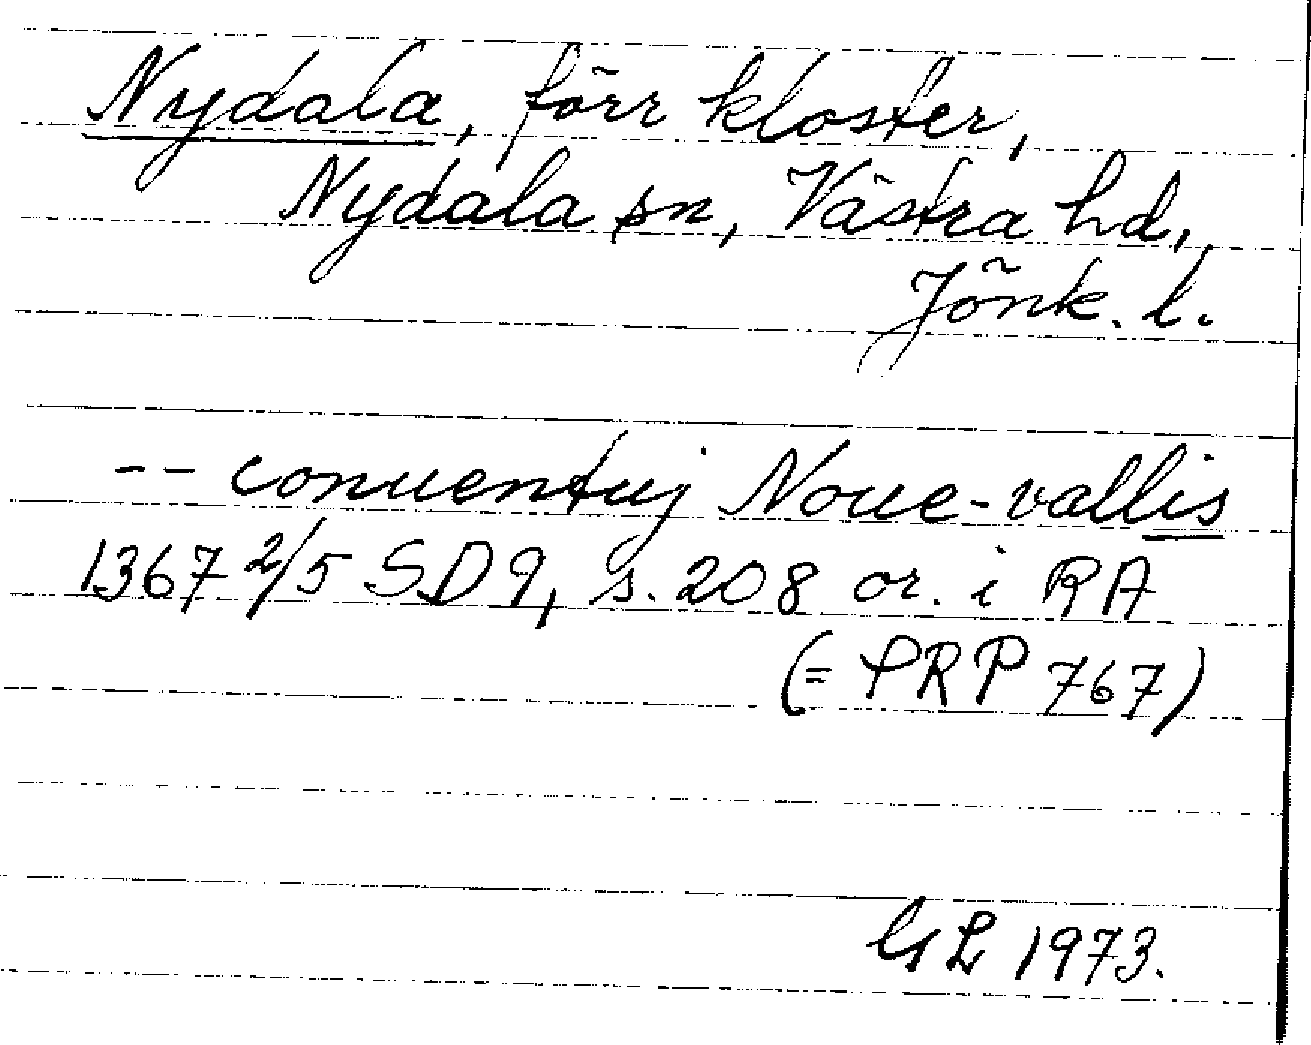 Nydala, förr kloster,
Nydala sn, Västra hd,
Jönk. l.
-- conuentuj Noue-vallis
1367 2/5 SD 9, s. 208 or. i RA
(= PRP 767)
GL 1973.